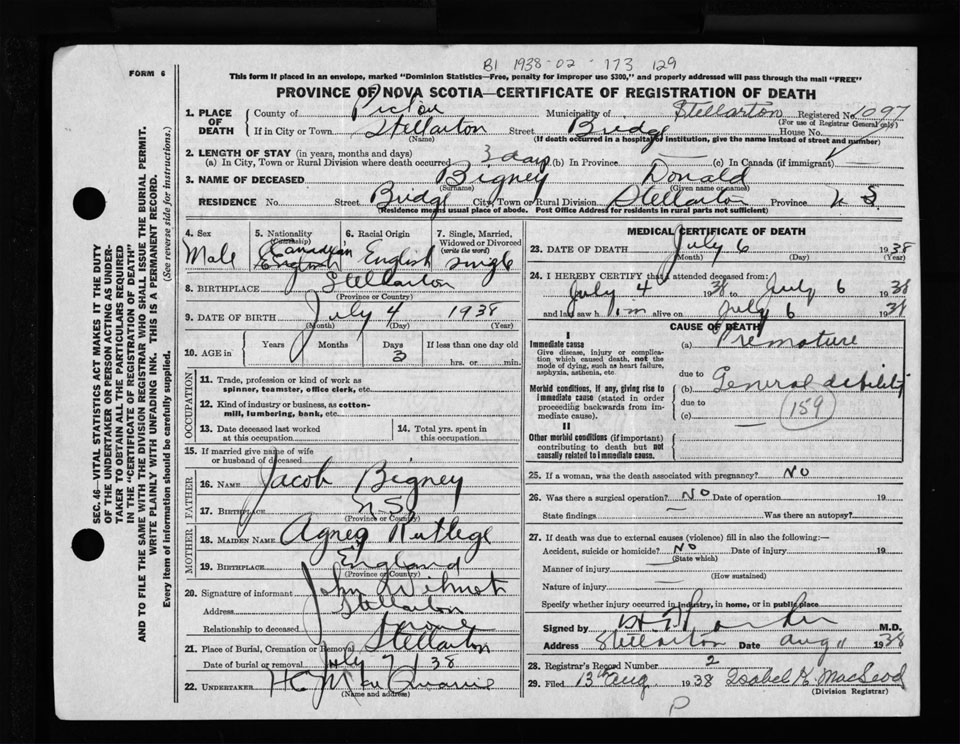 B1 1938-02-173 129
FORM 6
This form if placed in an envelope, marked "Dominion Statistics—Free, penalty for improper use $300," and properly addressed will pass through the mail "FREE"
PROVINCE OF NOVA SCOTIA—CERTIFICATE OF REGISTRATION OF DEATH
SEC. 46—VITAL STATISTICS ACT MAKES IT THE DUTY
OF THE UNDERTAKER OR PERSON ACTING AS UNDER-
TAKER TO OBTAIN ALL THE PARTICULARS REQUIRED
IN THE "CERTIFICATE OF REGISTRATION OF DEATH"
AND TO FILE THE SAME WITH THE DIVISION REGISTRAR WHO SHALL ISSUE THE BURIAL PERMIT.
WRITE PLAINLY WITH UNFADING INK. THIS IS A PERMANENT RECORD.
Every item of information should be carefully supplied. (See reverse side for instructions.)
1. PLACE OF DEATH County of Pictou Municipality of Stellarton Registered No. 1097
(For use of Registrar General only)
If in City or Town Stellarton Street Bridge House No.
(Name) (If death occurred in a hospital or institution, give the name instead of street and number)
2. LENGTH OF STAY (in years, months and days)
(a) In City, Town or Rural Division where death occurred 3 days (b) In Province — (c) In Canada (if immigrant)
3. NAME OF DECEASED Bigney Donald
(Surname) (Given name or names)
RESIDENCE No. Street Bridge City, Town or Rural Division Stellarton Province N S.
(Residence means usual place of abode. Post Office Address for residents in rural parts not sufficient)
4. Sex Male
5. Nationality (Citizenship) Canadian English
6. Racial Origin English
7. Single, Married, Widowed or Divorced (write the word) single
8. BIRTHPLACE Stellarton
(Province or Country)
9. DATE OF BIRTH July 4 1938
(Month) (Day) (Year)
10. AGE in Years Months Days 3 If less than one day old hrs. or min.
OCCUPATION
11. Trade, profession or kind of work as spinner, teamster, office clerk, etc.
12. Kind of industry or business, as cotton-mill, lumbering, bank, etc.
13. Date deceased last worked at this occupation
14. Total yrs. spent in this occupation
15. If married give name of wife or husband of deceased
FATHER
16. NAME Jacob Bigney
17. BIRTHPLACE N.S.
(Province or Country)
MOTHER
18. MAIDEN NAME Agnes Rutlege
19. BIRTHPLACE England
(Province or Country)
20. Signature of informant John Wilmot
Address Stellarton
Relationship to deceased none
21. Place of Burial, Cremation or Removal Stellarton
Date of burial or removal July 7/38
22. UNDERTAKER H C MacQuarrie
(Name and address)
MEDICAL CERTIFICATE OF DEATH
23. DATE OF DEATH July 6 1938
(Month) (Day) (Year)
24. I HEREBY CERTIFY that I attended deceased from:
July 4 1938 to July 6 1938
and last saw him alive on July 6 1938
CAUSE OF DEATH
I
Immediate cause
Give disease, injury or complication which caused death, not the mode of dying, such as heart failure, asphyxia, asthenia, etc.
(a) Premature
due to
Morbid conditions, if any, giving rise to immediate cause (stated in order proceeding backwards from immediate cause).
(b) General debility
due to
(c) (159)
II
Other morbid conditions (if important) contributing to death but not causally related to immediate cause.
25. If a woman, was the death associated with pregnancy? No
26. Was there a surgical operation? No Date of operation 19
State findings — Was there an autopsy?
27. If death was due to external causes (violence) fill in also the following:—
Accident, suicide or homicide? No Date of injury 19
(State which)
Manner of injury —
(How sustained)
Nature of injury —
Specify whether injury occurred in industry, in home, or in public place
Signed by M.D.
Address Stellarton Date Aug 11 1938
28. Registrar's Record Number 2
29. Filed 13th Aug 1938 Isobel K. MacLeod
(Division Registrar)
P